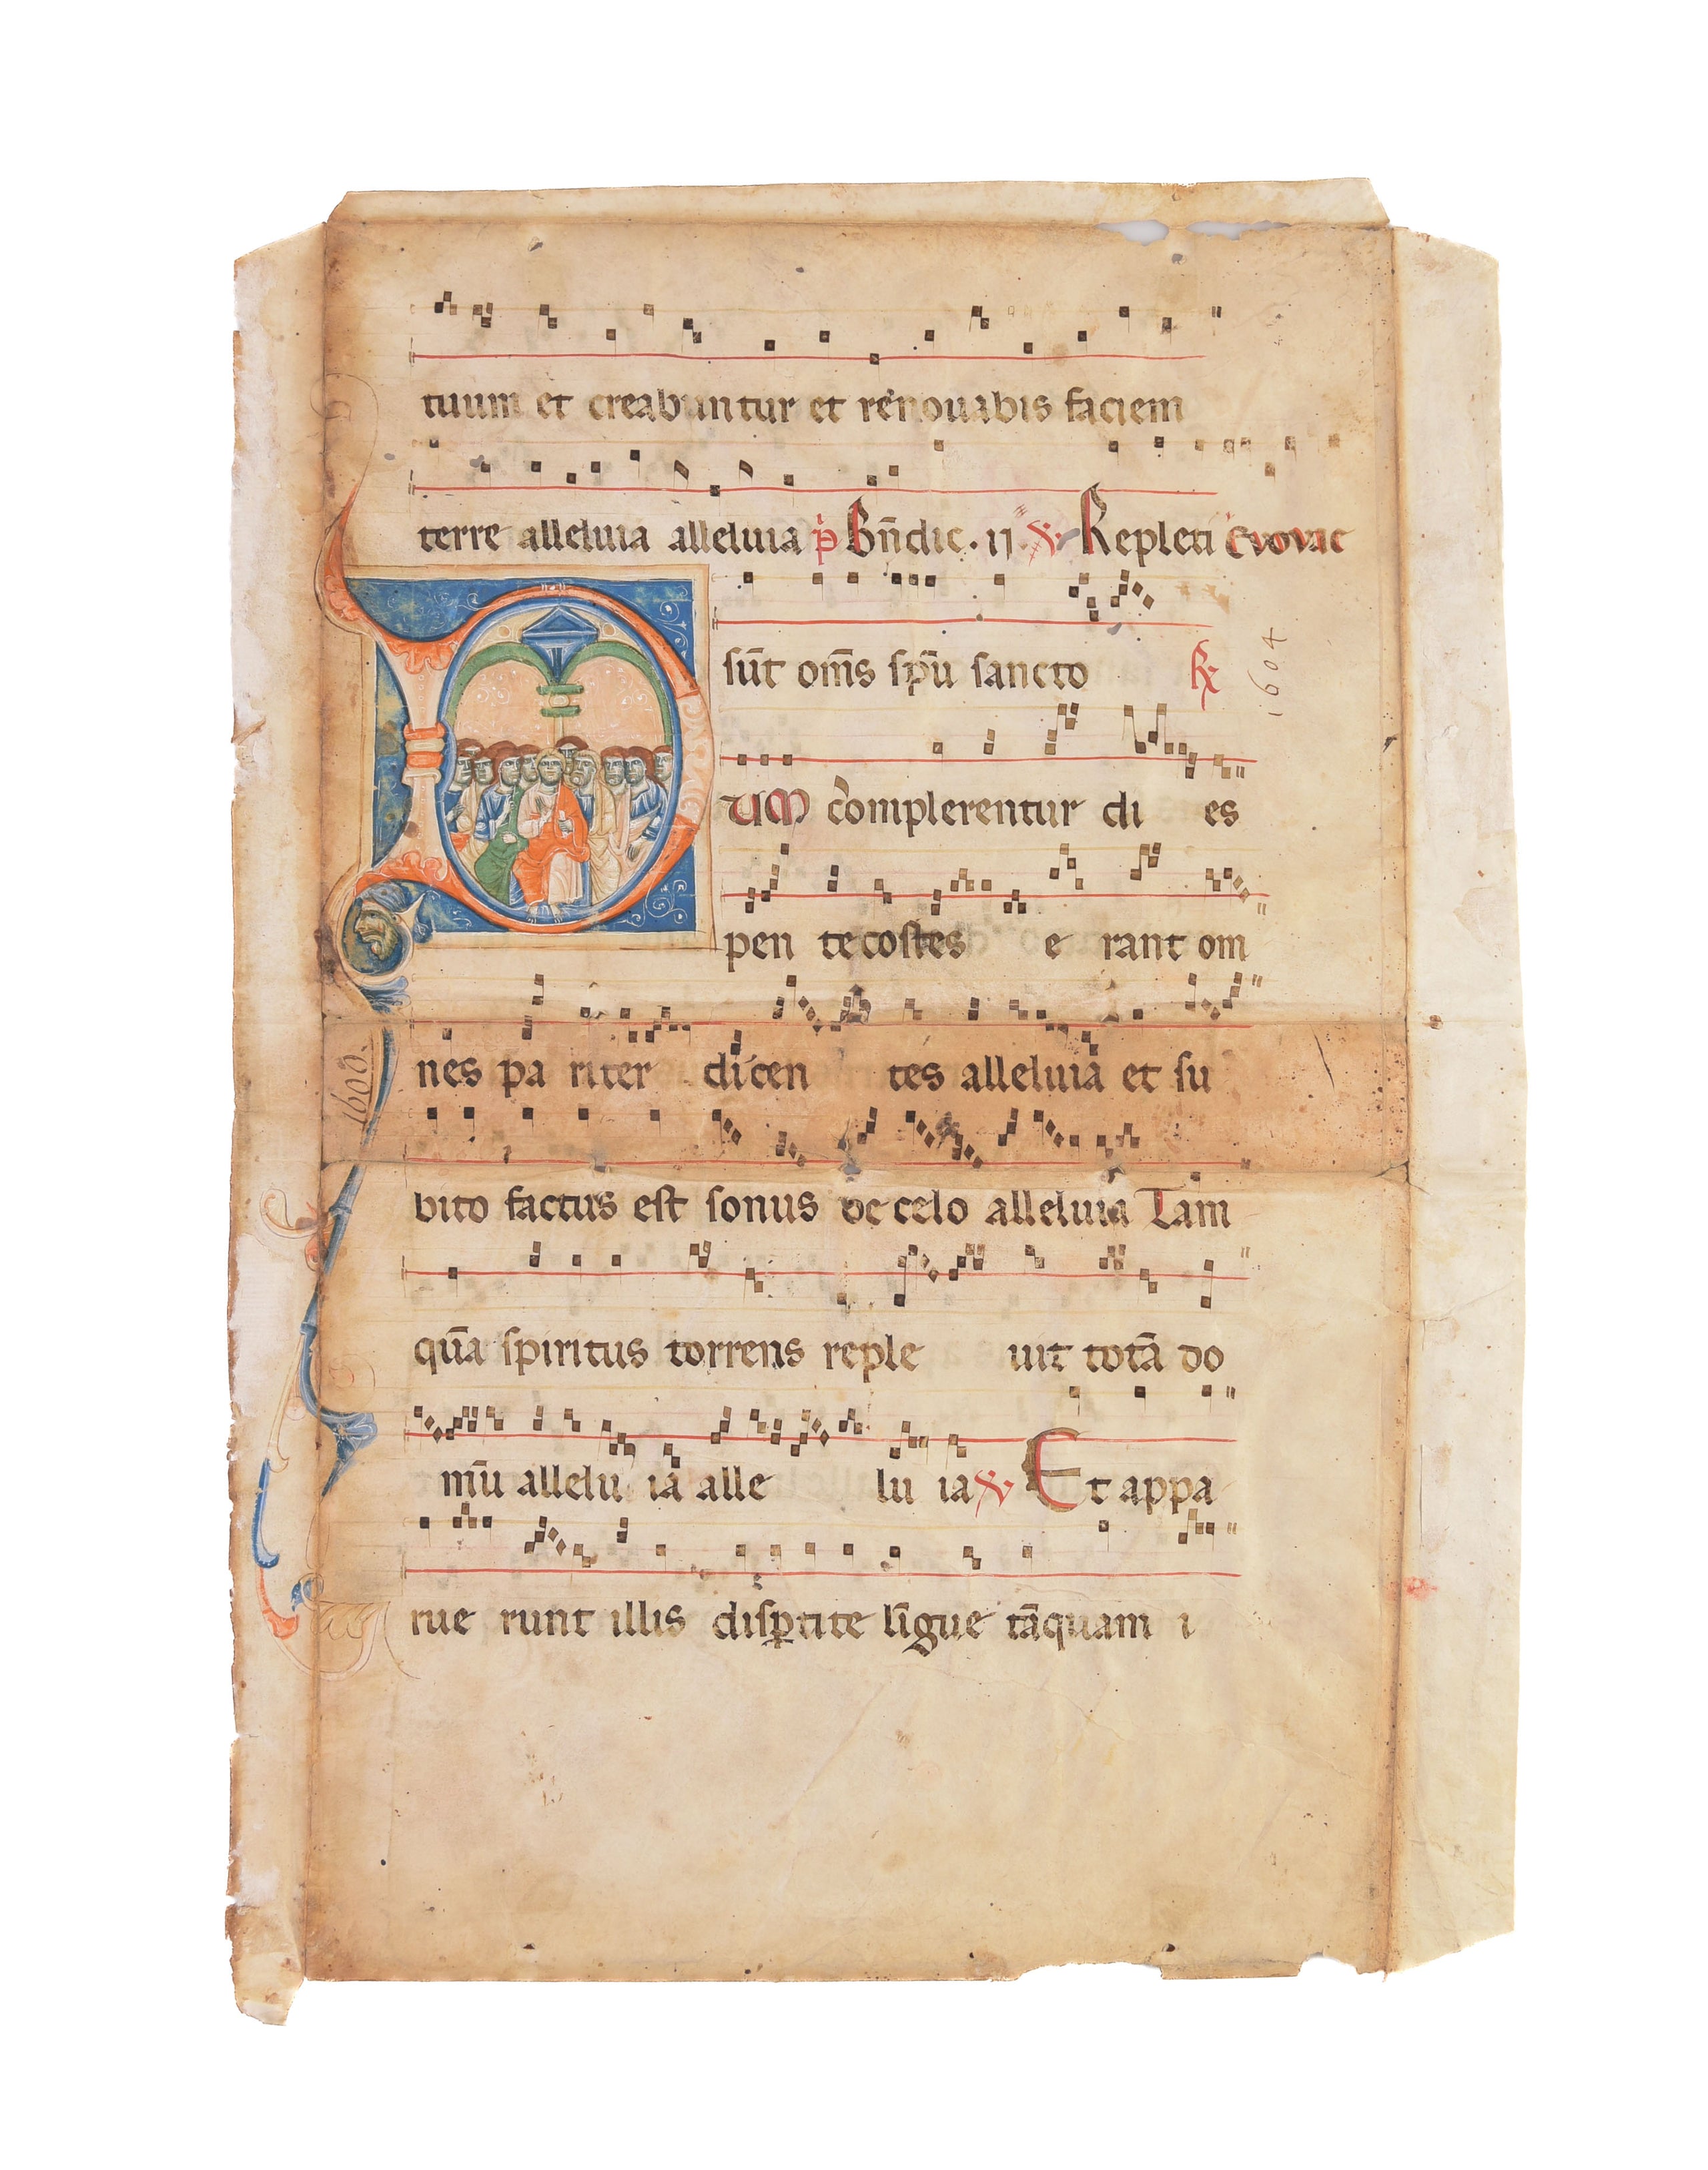 tuum et creabuntur et renouabis faciem
terre alleluia alleluia p̄ Bn̄dic. ii. ℣ Repleti Evovae
sūt om̄s sp̄u sancto ℟
1604
DUM complerentur di es
pen tecostes e rant om
nes pa riter dicen tes alleluia et su
1608.
bito factus est sonus de celo alleluia Tam
quā spiritus torrens reple uit totā do
mū allelu ia alle lu ia ℣ Et appa
rue runt illis disꝑtite līgue tāquam i